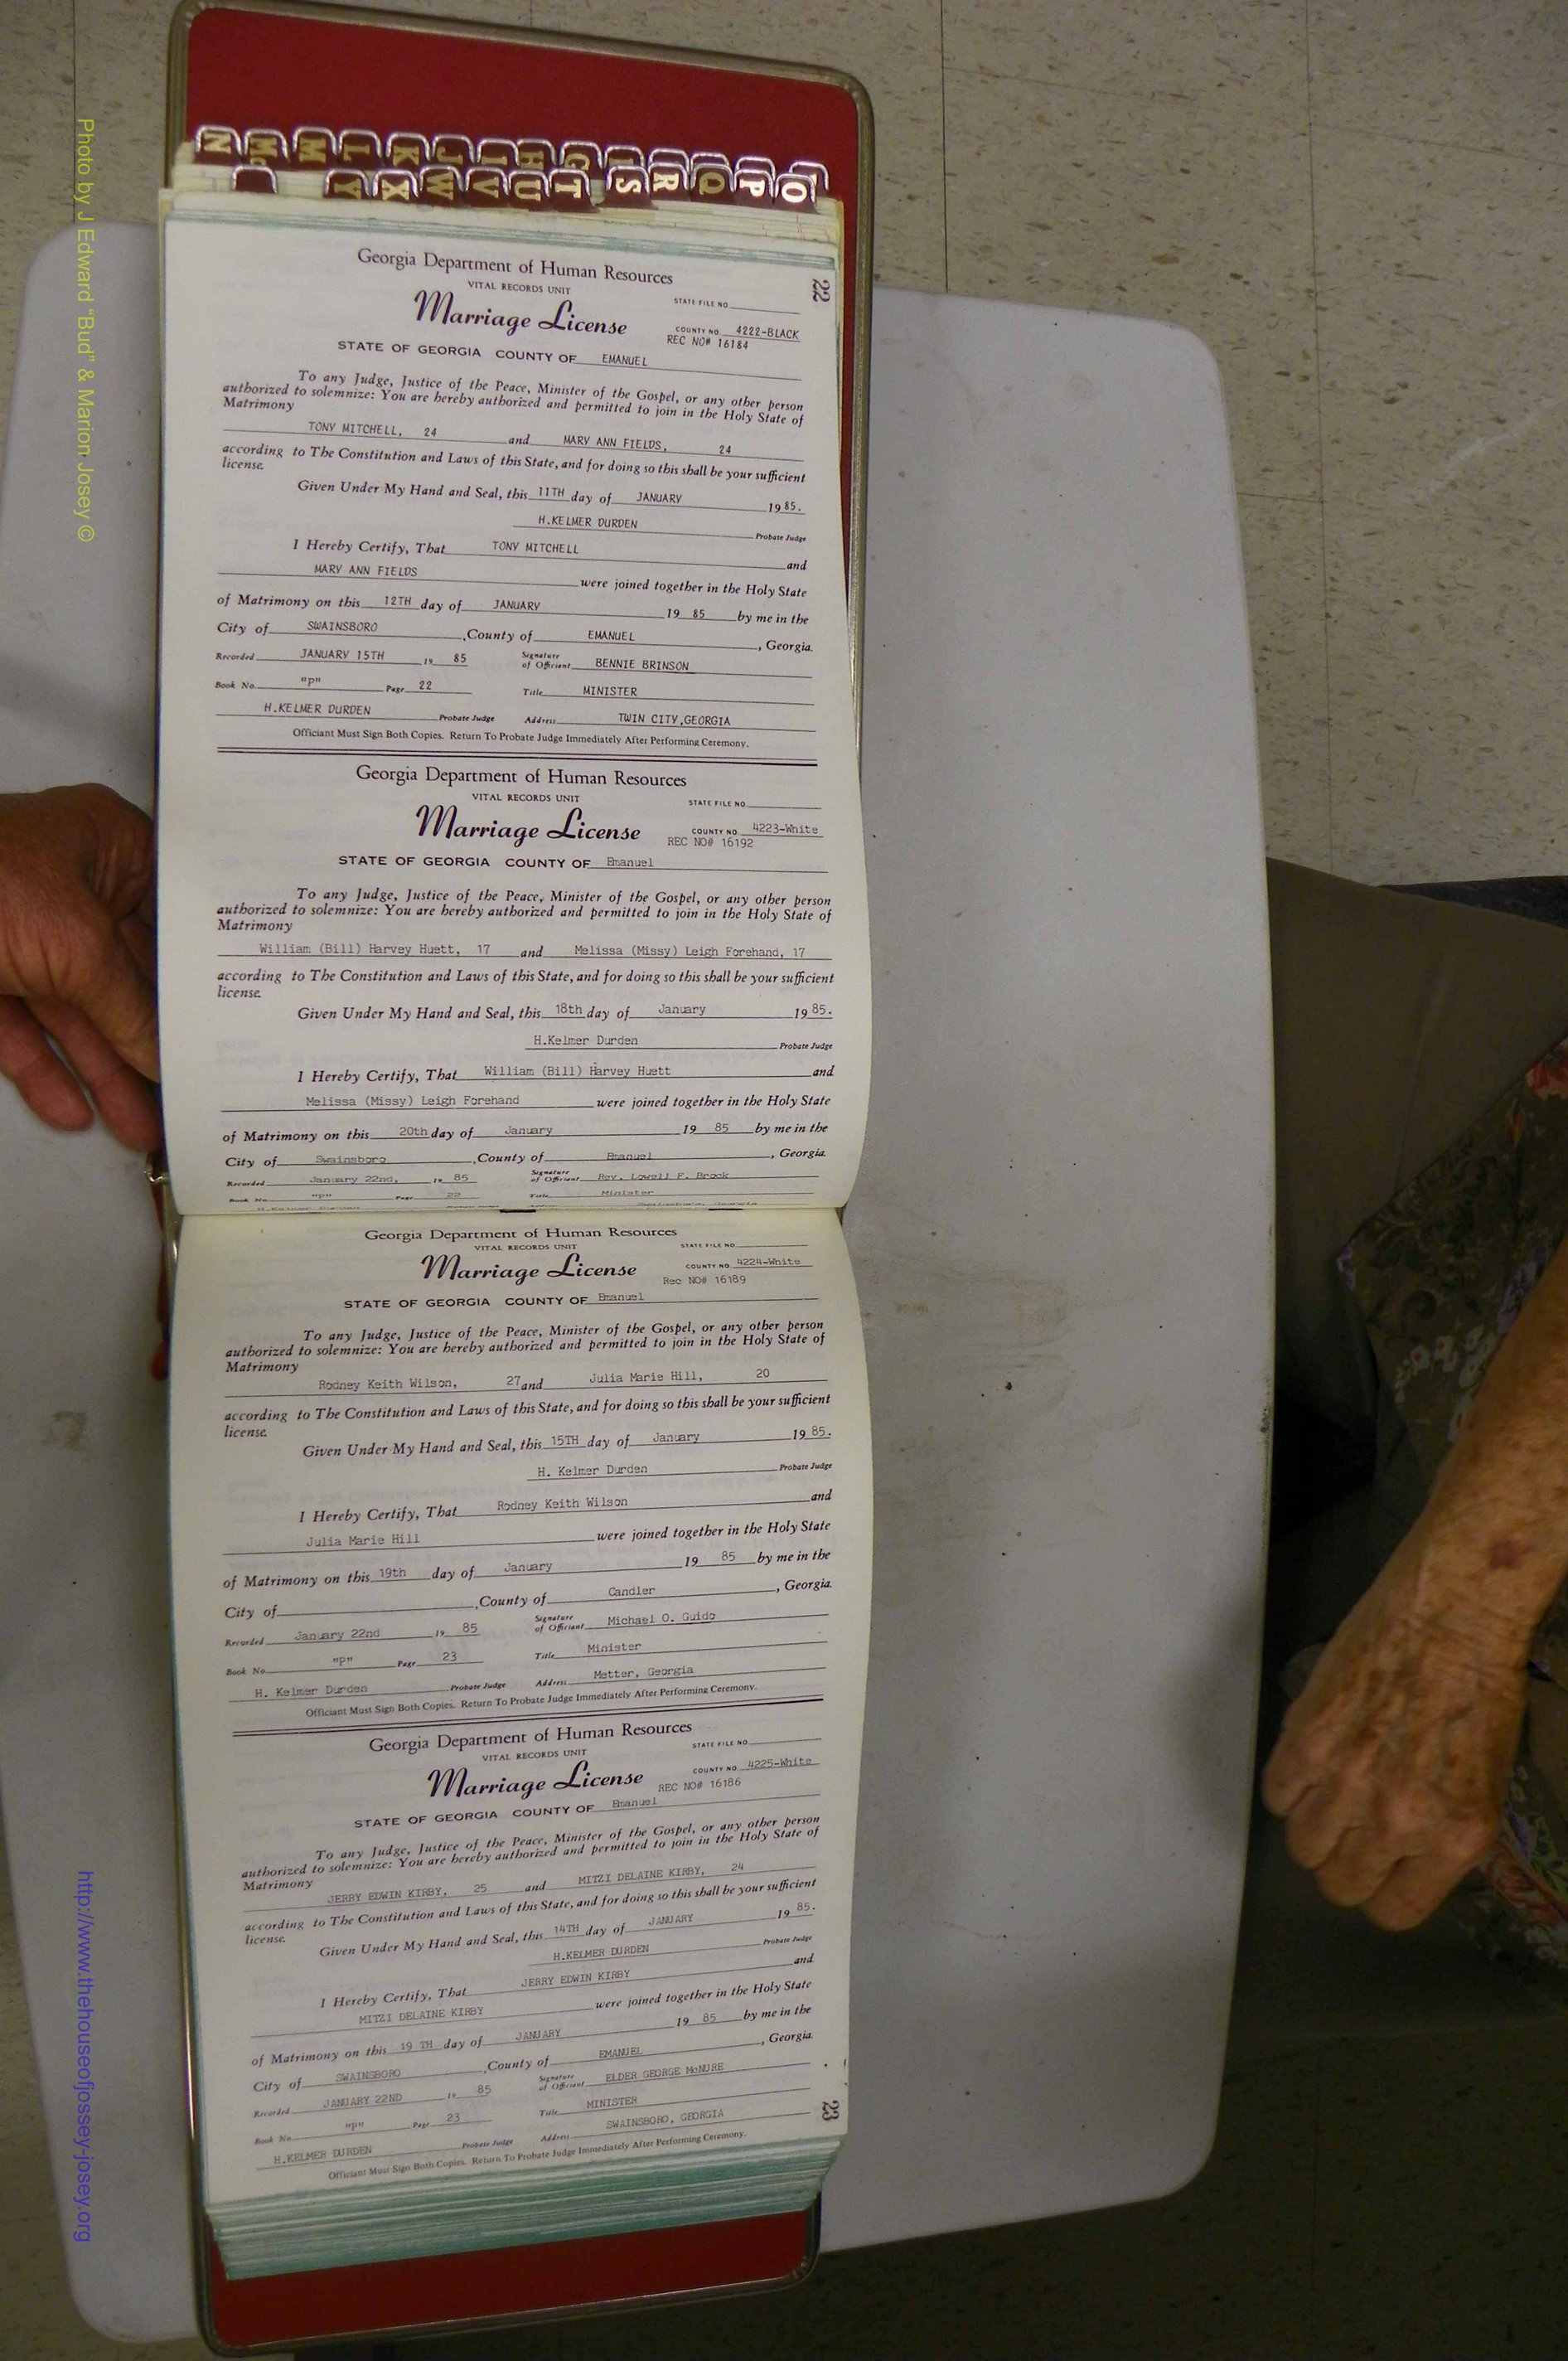 N Mc M L K J I H G F
Y X W V U T S R Q P O
22
Georgia Department of Human Resources
VITAL RECORDS UNIT
STATE FILE NO.
Marriage License
COUNTY NO. 4222-BLACK
REC NO# 16184
STATE OF GEORGIA COUNTY OF EMANUEL
To any Judge, Justice of the Peace, Minister of the Gospel, or any other person
authorized to solemnize: You are hereby authorized and permitted to join in the Holy State of
Matrimony
TONY MITCHELL, 24 and MARY ANN FIELDS, 24
according to The Constitution and Laws of this State, and for doing so this shall be your sufficient
license.
Given Under My Hand and Seal, this 11TH day of JANUARY 1985.
H.KELMER DURDEN Probate Judge
I Hereby Certify, That TONY MITCHELL and
MARY ANN FIELDS were joined together in the Holy State
of Matrimony on this 12TH day of JANUARY 19 85 by me in the
City of SWAINSBORO ,County of EMANUEL , Georgia.
Recorded JANUARY 15TH 19 85 Signature of Officiant BENNIE BRINSON
Book No. "p" Page 22 Title MINISTER
H.KELMER DURDEN Probate Judge Address TWIN CITY,GEORGIA
Officiant Must Sign Both Copies. Return To Probate Judge Immediately After Performing Ceremony.
Georgia Department of Human Resources
VITAL RECORDS UNIT
STATE FILE NO.
Marriage License
COUNTY NO. 4223-White
REC NO# 16192
STATE OF GEORGIA COUNTY OF Emanuel
To any Judge, Justice of the Peace, Minister of the Gospel, or any other person
authorized to solemnize: You are hereby authorized and permitted to join in the Holy State of
Matrimony
William (Bill) Harvey Huett, 17 and Melissa (Missy) Leigh Forehand, 17
according to The Constitution and Laws of this State, and for doing so this shall be your sufficient
license.
Given Under My Hand and Seal, this 18th day of January 1985.
H.Kelmer Durden Probate Judge
I Hereby Certify, That William (Bill) Harvey Huett and
Melissa (Missy) Leigh Forehand were joined together in the Holy State
of Matrimony on this 20th day of January 19 85 by me in the
City of Swainsboro ,County of Emanuel , Georgia.
Recorded January 22nd, 19 85 Signature of Officiant Rev. Lowell F. Brock
Book No. "p" Page 22 Title Minister
H.Kelmer Durden
Georgia Department of Human Resources
VITAL RECORDS UNIT
STATE FILE NO.
Marriage License
COUNTY NO. 4224-White
Rec NO# 16189
STATE OF GEORGIA COUNTY OF Emanuel
To any Judge, Justice of the Peace, Minister of the Gospel, or any other person
authorized to solemnize: You are hereby authorized and permitted to join in the Holy State of
Matrimony
Rodney Keith Wilson, 27 and Julia Marie Hill, 20
according to The Constitution and Laws of this State, and for doing so this shall be your sufficient
license.
Given Under My Hand and Seal, this 15TH day of January 1985.
H. Kelmer Durden Probate Judge
I Hereby Certify, That Rodney Keith Wilson and
Julia Marie Hill were joined together in the Holy State
of Matrimony on this 19th day of January 19 85 by me in the
City of ,County of Candler , Georgia.
Recorded January 22nd 19 85 Signature of Officiant Michael O. Guido
Book No. "p" Page 23 Title Minister
H. Kelmer Durden Probate Judge Address Metter, Georgia
Officiant Must Sign Both Copies. Return To Probate Judge Immediately After Performing Ceremony.
Georgia Department of Human Resources
VITAL RECORDS UNIT
STATE FILE NO.
Marriage License
COUNTY NO. 4225-White
REC NO# 16186
STATE OF GEORGIA COUNTY OF Emanuel
To any Judge, Justice of the Peace, Minister of the Gospel, or any other person
authorized to solemnize: You are hereby authorized and permitted to join in the Holy State of
Matrimony
JERRY EDWIN KIRBY, 25 and MITZI DELAINE KIRBY, 24
according to The Constitution and Laws of this State, and for doing so this shall be your sufficient
license.
Given Under My Hand and Seal, this 14TH day of JANUARY 1985.
H.KELMER DURDEN Probate Judge
I Hereby Certify, That JERRY EDWIN KIRBY and
MITZI DELAINE KIRBY were joined together in the Holy State
of Matrimony on this 19 TH day of JANUARY 19 85 by me in the
City of SWAINSBORO ,County of EMANUEL , Georgia.
Recorded JANUARY 22ND 19 85 Signature of Officiant ELDER GEORGE McNURE
Book No. "p" Page 23 Title MINISTER
H.KELMER DURDEN Probate Judge Address SWAINSBORO, GEORGIA
Officiant Must Sign Both Copies. Return To Probate Judge Immediately After Performing Ceremony.
23
Photo by J Edward "Bud" & Marion Josey ©
http://www.thehouseofjossey-josey.org